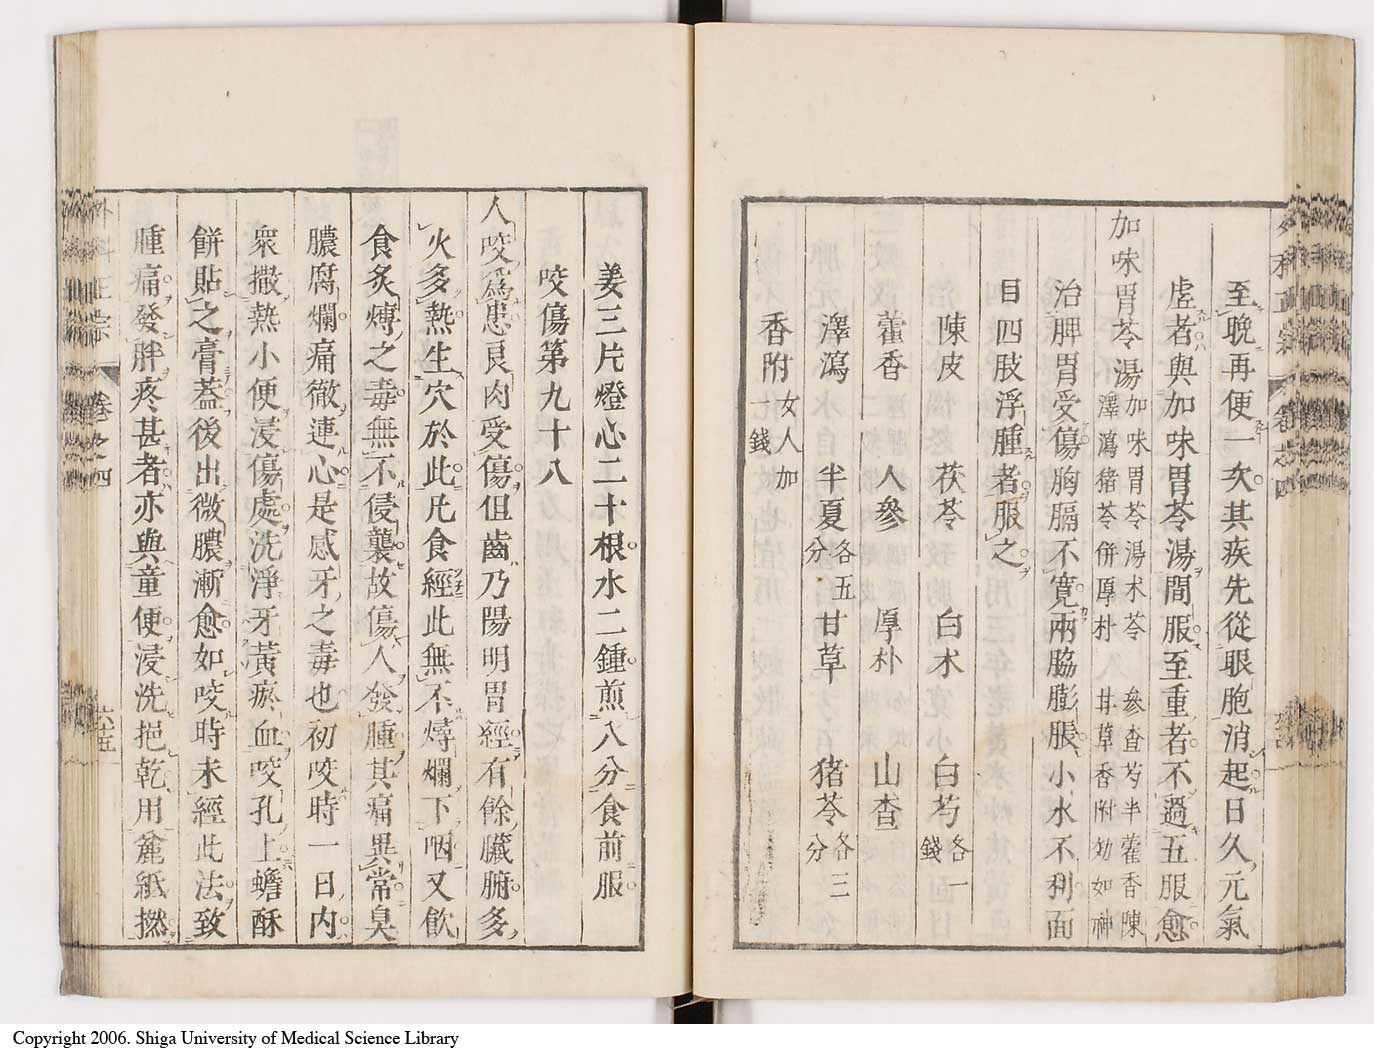 至晩再便一次其疾先從眼胞消起日久元氣
虚者與加味胃苓湯間服至重者不過五服愈
加味胃苓湯 加味胃苓湯术苓 參查芍半藿香陳
澤瀉猪苓併厚朴 甘草香附効如神
治脾胃受傷胸膈不寛兩脇膨脹小水不利面
目四肢浮腫者服之
陳皮 茯苓 白术 白芍各一錢
藿香 人參 厚朴 山查
澤瀉 半夏各五分 甘草 猪苓各三分
香附女人加一錢
姜三片燈心二十根水二鍾煎八分食前服
咬傷第九十八
人咬爲患良肉受傷但齒乃陽明胃經有餘臟腑多
火多熱生穴於此凡食經此無不燖爛下咽又飮
食炙煿之毒無不侵襲故傷人發腫其痛異常臭
膿腐爛痛徹連心是感牙之毒也初咬時一日内
衆撒熱小便浸傷處洗淨牙黃瘀血咬孔上蟾酥
餅貼之膏蓋後出微膿漸愈如咬時未經此法致
腫痛發胖疼甚者亦與童便浸洗挹乾用麄紙撚
外科正宗 卷之四 六十五